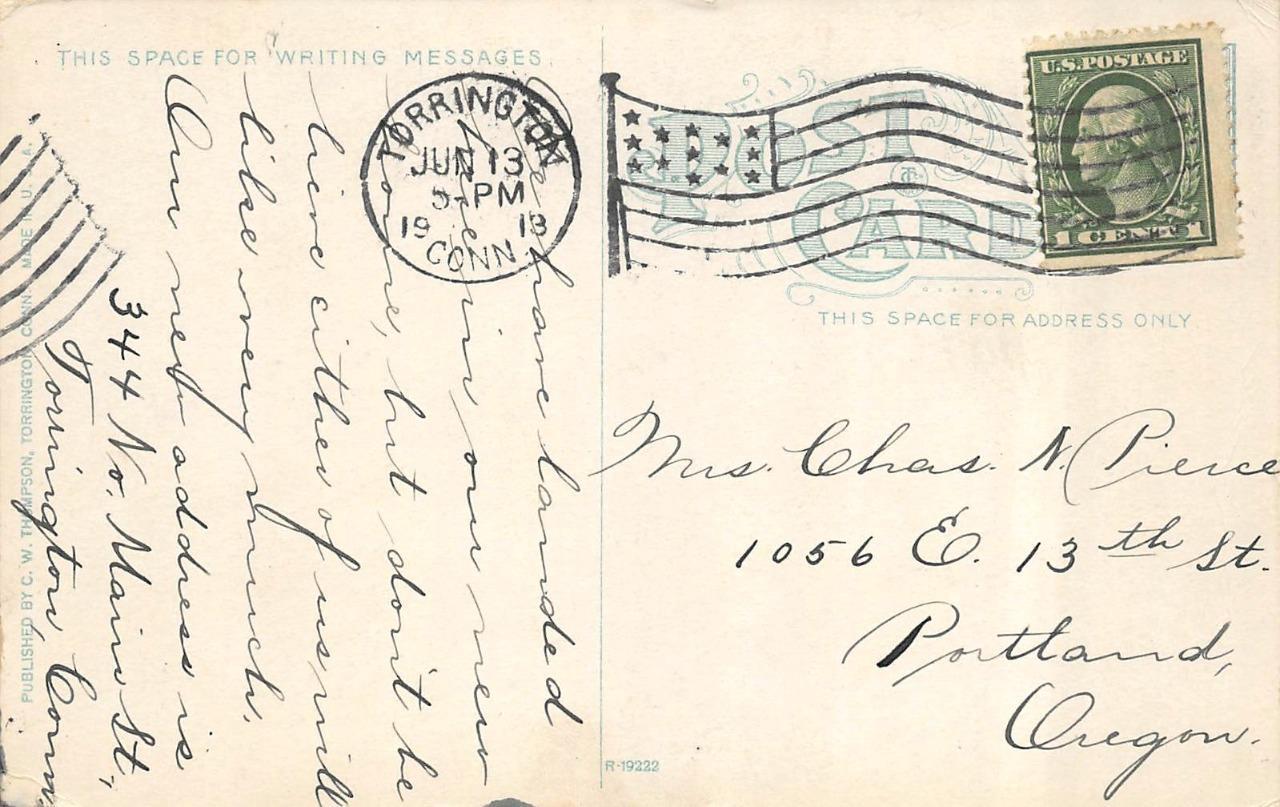 THIS SPACE FOR WRITING MESSAGES
We have landed
here in our new
home, but don't be
lieve either of us will
like very much.
Our new address is
344 No. Main St.,
Torrington, Conn.
PUBLISHED BY C. W. THOMPSON, TORRINGTON, CONN. MADE IN U. S. A.
TORRINGTON
JUN 13
5-PM
1913
CONN.
POST CARD
U.S.POSTAGE
1 CENT 1
THIS SPACE FOR ADDRESS ONLY
Mrs. Chas. N. Pierce
1056 E. 13th St.
Portland,
Oregon.
R-19222